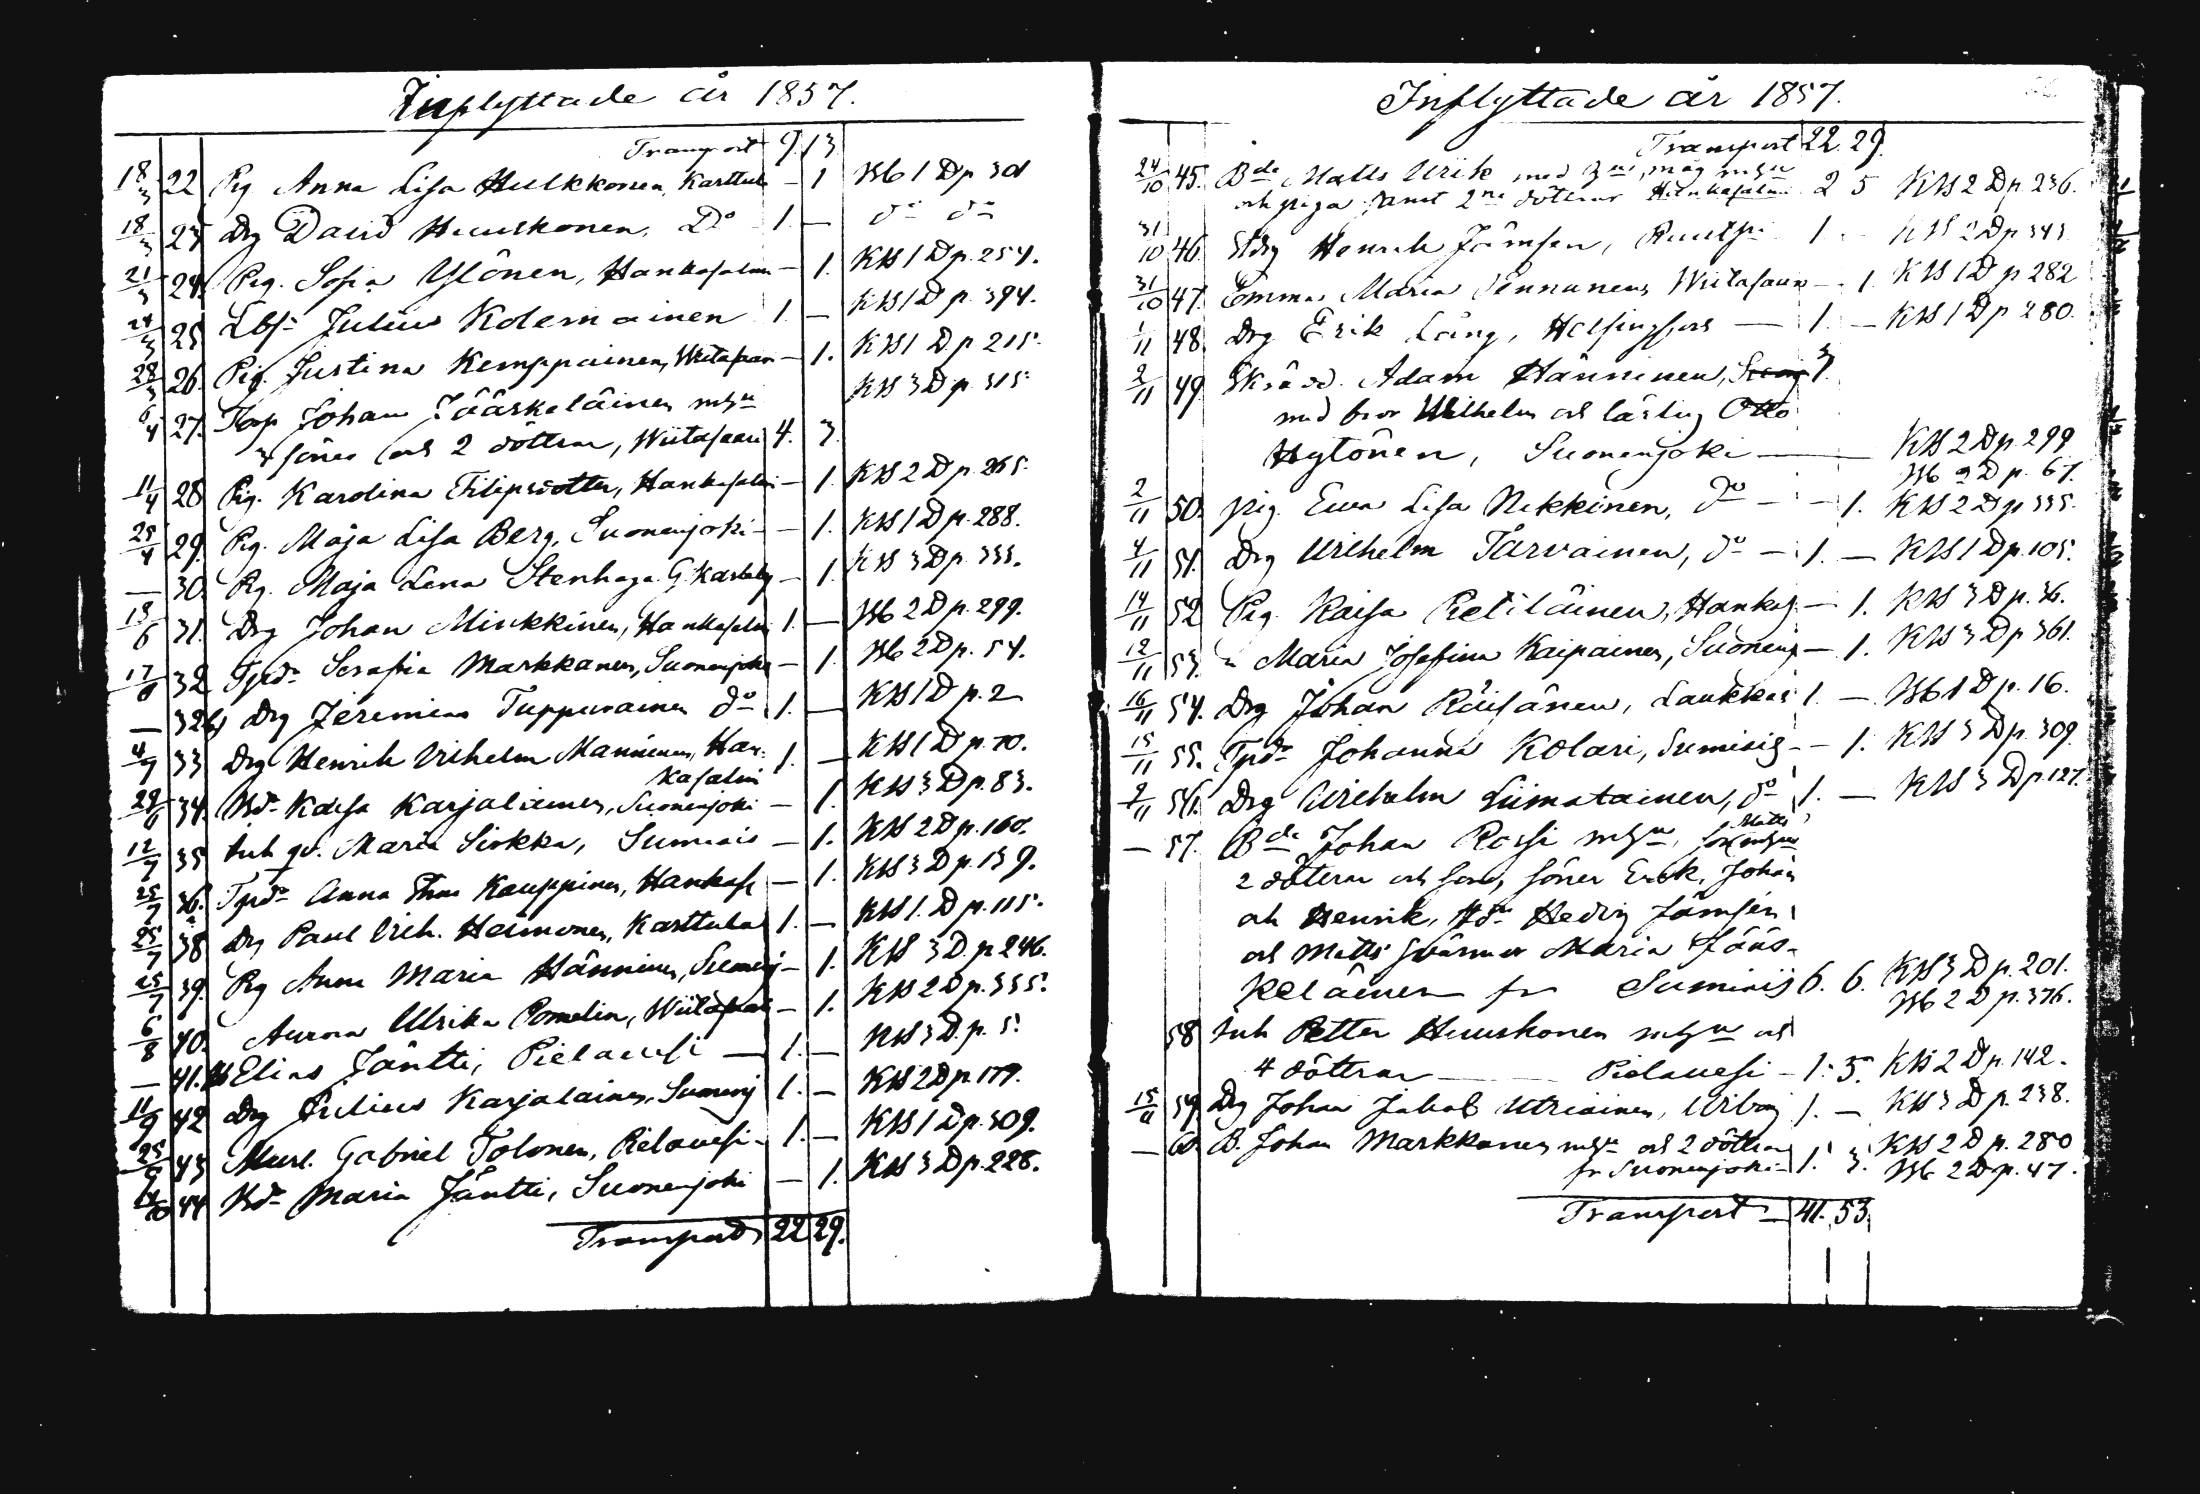 Inflyttade år 1857.
Transport 9. 13
18/3 22 Pig Anna Lisa Hulkkonen, Karttula – 1 Wb 1 D p. 301
18/3 23 Drg David Huuskonen, Do 1. — do do
21/3 24. Pig. Sofia Ylönen, Hankasalmi – 1. KW 1 D p. 254.
24/3 25 Lbf. Julius Kolemainen 1. — KW 1 D p. 394.
28/3 26. Pig. Justina Kemppainen, Wiitasaari – 1. KW 1 D. p 215.
6/4 27. Torp Johan Jääskeläinen mhu KW 3 D p. 315
4 söner och 2 döttrar, Wiitasaari 4. 3.
11/4 28 Pig. Karolina Filipsdotter, Hankasalmi – 1. KW 2 D p. 265.
25/4 29. Pig. Maja Lisa Berg, Suonenjoki – 1. KW 1 D p. 288.
— 30. Pig. Maja Lena Stenhaga G. Karleby – 1. KW 3 D p. 333.
13/6 31. Drg Johan Minkkinen, Hankasalmi 1. — Wb 2 D p. 299.
17/6 32 Tpd. Serafia Markkanen, Suonenjoki – 1. Wb 2 D p. 54.
— 32b) Drg Jeremias Tuppurainen do 1. — KW 1 D p. 2
4/7 33 Drg Henrik Wilhelm Manninen, Han- 1. — KW 1 D p. 70.
kasalmi
29/6 34. Kd. Kaisa Karjalainen, Suonenjoki – 1. KW 3 D p. 83.
12/7 35 Inh qv. Maria Sirkka, Sumiais – 1. KW 2 D p. 160.
25/7 36. Tpd. Anna Kauppinen, Hankas – 1. KW 3 D p. 139.
25/7 38 Drg Paul Wilh. Heimonen, Karttula 1. — KW 1. D p. 115.
25/7 39. Pig Anna Maria Hänninen, Suonenj – 1. KW 3 D. p 246.
6/8 40. Aurora Ulrika Pomelin, Wiitasaari – 1. KW 2 D p. 335.
— 41. Elias Jäntti, Pielavesi — 1. — KW 3 D. p. 5.
11/9 42 Drg Julius Karjalainen, Suonenj 1. — KW 2 D p 179.
25/9 43 Murl. Gabriel Tolonen, Pielavesi – 1. — KW 1 D p. 309.
14/10 44 Kd. Maria Jäntti, Suonenjoki – 1. KW 3 D p. 228.
Transport 22 29.
Inflyttade år 1857.
Transport 22. 29.
24/10 45. Bde Matts Ulrik med hu, måg mhu
och piga samt 2ne döttrar Hankasalmi 2 5 KW 2 D p. 236.
31/10 46. Henrik Jämsen, 1 – KW 2 D p 343
31/10 47. Emma Maria Pennanen, Wiitasaari – 1. KW 1 D p 282
1/11 48. Drg Erik Lång, Helsingfors — 1. — KW 1 D p 280.
2/11 49 Skrädd. Adam Hänninen, 3
med bror Wilhelm och lärling Otto
Hytönen, Suonenjoki — KW 2 D p. 299
Wb 2 D p. 67.
2/11 50. pig. Ewa Lisa Nekkinen, do – 1. KW 2 D p 335.
4/11 51. Drg Wilhelm Tarvainen, do – 1. — KW 1 D p. 105.
14/11 52 Pig. Kaisa Retiläinen, Hankas. — 1. KW 3 D p. 36.
12/11 53. " Maria Josefina Kaipainen, Suonenj – 1. KW 3 D p 361.
16/11 54. Drg Johan Räisänen, Laukkas 1. — Wb 1 D p. 16.
15/11 55. Tpd. Johanna Kolari, Sumiais – 1. KW 3 D p. 309
2/11 56. Drg Wilhelm Liimatainen, do 1. — KW 3 D p 127.
— 57. Bde Johan Rossi mhu, son Matts mhu
2 döttrar och söner Erik, Johan
och Henrik, Hedvig Jämsen
och Matts svärmor Maria Jääs-
keläinen fr Sumiais 6. 6. KW 3 D p. 201.
Wb 2 D p. 376.
58 Inh Petter Huuskonen mhu och
4 döttrar — Pielavesi – 1. 5. KW 2 D p. 142.
15/11 59. Drg Johan Jakob Utriainen, Wiborg 1. — KW 3 D p. 238.
— 60. B. Johan Markkanen mhu och 2 döttrar
fr Suonenjoki 1. 3. KW 2 D p. 280
Wb 2 D p. 47.
Transport — 41. 53.